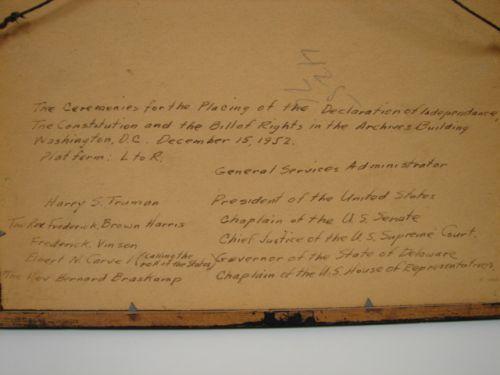 The Ceremonies for the Placing of the Declaration of Independence,
The Constitution and the Bill of Rights in the Archives Building
Washington, D.C. December 15, 1952.
Platform: L to R.
General Services Administrator
Harry S. Truman President of the United States
The Rev Frederick Brown Harris Chaplain of the U.S. Senate
Frederick Vinson Chief Justice of the U.S. Supreme Court.
Elbert N. Carvel (calling the roll of the States) Governor of the State of Delaware
The Rev Bernard Braskamp Chaplain of the U.S. House of Representatives